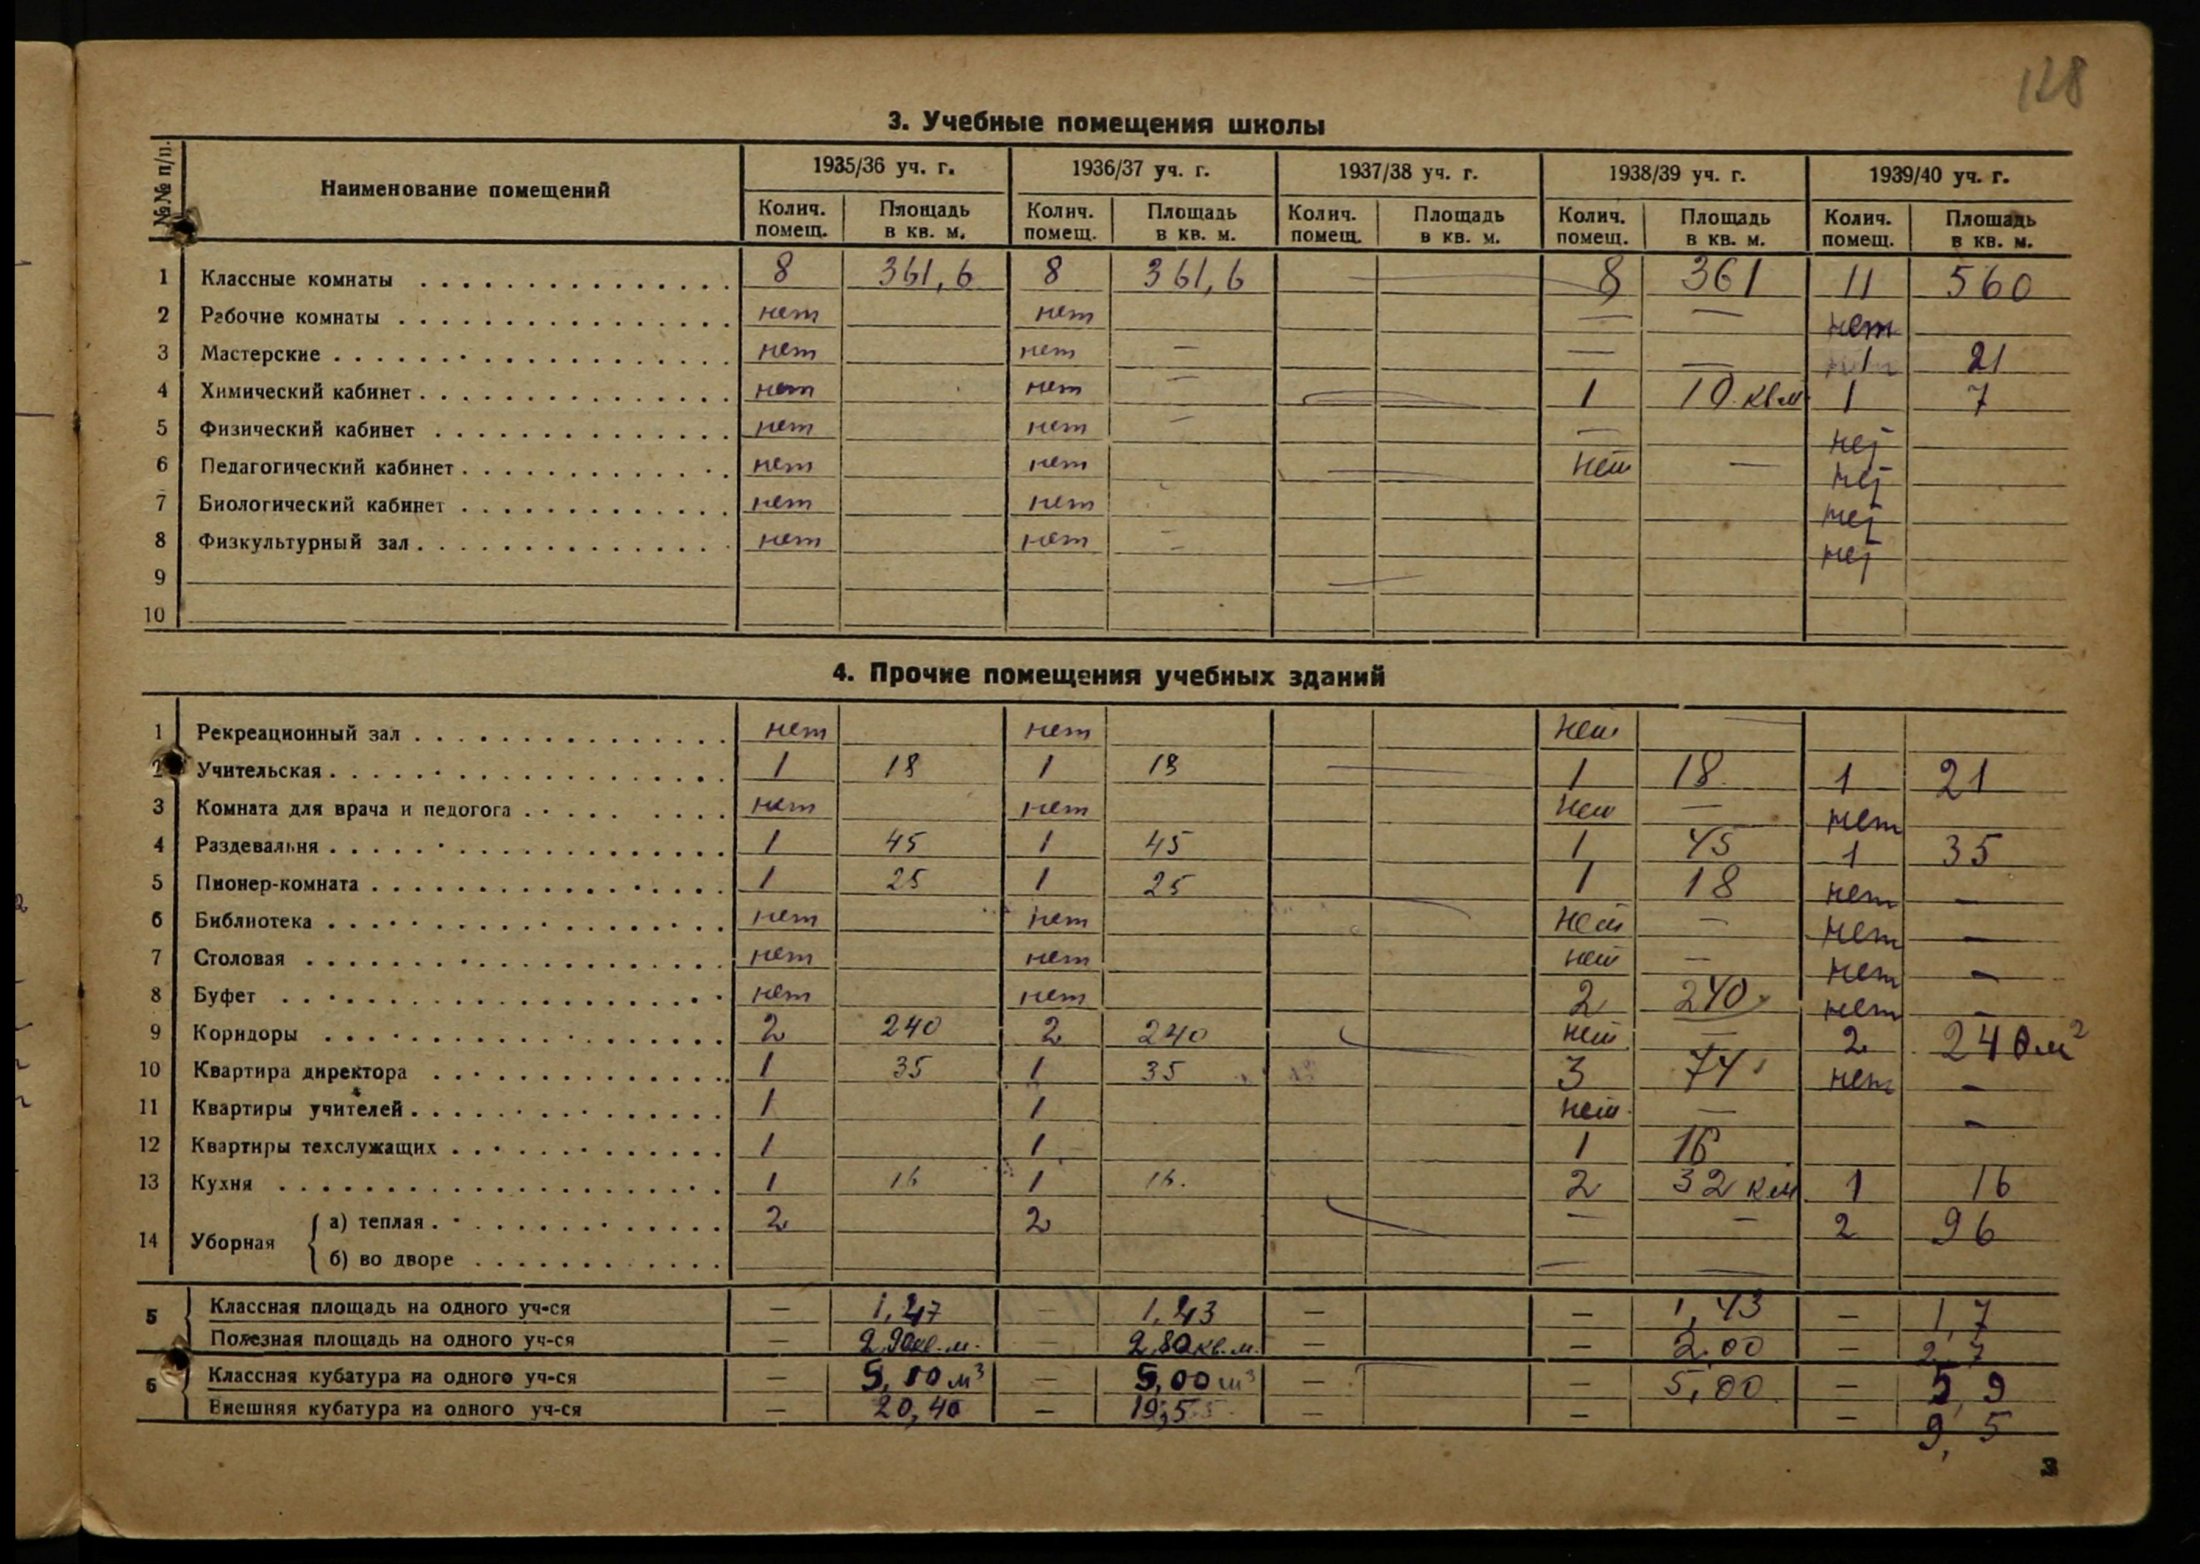 128
3. Учебные помещения школы
№№ п/п. Наименование помещений 1935/36 уч. г. 1936/37 уч. г. 1937/38 уч. г. 1938/39 уч. г. 1939/40 уч. г.
Колич. помещ. Площадь в кв. м. Колич. помещ. Площадь в кв. м. Колич. помещ. Площадь в кв. м. Колич. помещ. Площадь в кв. м. Колич. помещ. Площадь в кв. м.
1 Классные комнаты 8 361,6 8 361,6 — — 8 361 11 560
2 Рабочие комнаты нет нет — — нет
3 Мастерские нет нет — — — 1 21
4 Химический кабинет нет нет — — 1 10 кв.м 1 7
5 Физический кабинет нет нет — — нет
6 Педагогический кабинет нет нет — нет — нет
7 Биологический кабинет нет нет нет
8 Физкультурный зал нет нет — нет
9
10
4. Прочие помещения учебных зданий
1 Рекреационный зал нет нет нет —
2 Учительская 1 18 1 18 — 1 18 1 21
3 Комната для врача и педогога нет нет нет — нет
4 Раздевальня 1 45 1 45 1 45 1 35
5 Пионер-комната 1 25 1 25 1 18 нет —
6 Библиотека нет нет нет — нет —
7 Столовая нет нет нет — нет —
8 Буфет нет нет 2 240 нет —
9 Коридоры 2 240 2 240 нет — 2 240м²
10 Квартира директора 1 35 1 35 3 74 нет —
11 Квартиры учителей 1 1 нет — —
12 Квартиры техслужащих 1 1 1 16
13 Кухня 1 16 1 16. 2 32 к.м 1 16
14 Уборная { а) теплая 2 2 — — 2 96
б) во дворе — —
5 Классная площадь на одного уч-ся — 1,47 — 1,43 — — 1,43 — 1,7
Полезная площадь на одного уч-ся — 2,90кв.м. — 2,80кв.м. — — 2.00 — 2,7
6 Классная кубатура на одного уч-ся — 5,10 м³ — 5,00 м³ — — 5,00 — 5,9
Внешняя кубатура на одного уч-ся — 20,40 — 19,55 — — — 9,5
3